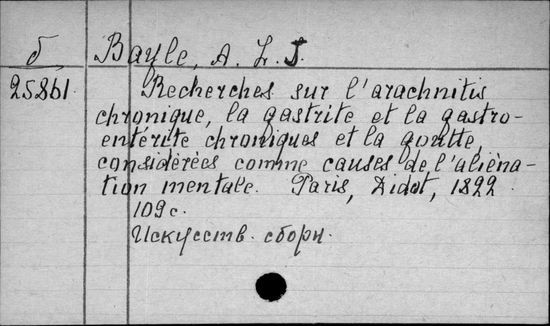 б Bayle, A. L. J.
25861. Recherches sur l'arachnitis
chronique, la gastrite et la gastro-
entérite chroniques et la goutte,
considérées comme causes de l'aliéna-
tion mentale. Paris, Didot, 1822.
109 с.
Искусств. сборн.